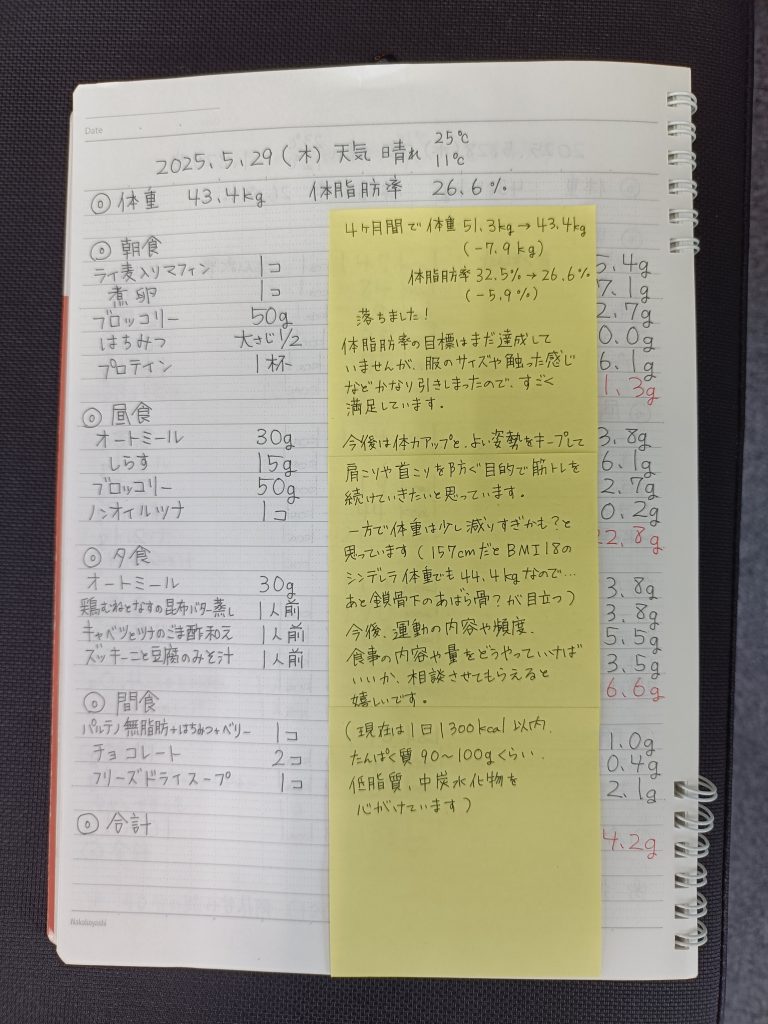 Date
2025.5.29 (木) 天気 晴れ 25℃
11℃
◎ 体重 43.4kg 体脂肪率 26.6%
◎ 朝食
ライ麦入りマフィン 1コ 5.4g
煮卵 1コ 7.1g
ブロッコリー 50g 2.7g
はちみつ 大さじ1/2 0.0g
プロテイン 1杯 6.1g
1.3g
◎ 昼食
オートミール 30g 3.8g
しらす 15g 6.1g
ブロッコリー 50g 2.7g
ノンオイルツナ 1コ 0.2g
22.8g
◎ 夕食
オートミール 30g 3.8g
鶏むねとなすの昆布バター蒸し 1人前 3.8g
キャベツとツナのごま酢和え 1人前 5.5g
ズッキーニと豆腐のみそ汁 1人前 3.5g
6.6g
◎ 間食
パルテノ無脂肪+はちみつ+ベリー 1コ 1.0g
チョコレート 2コ 0.4g
フリーズドライスープ 1コ 2.1g
◎ 合計 4.2g
Nakabayashi
4ヶ月間で体重 51.3kg→43.4kg
(-7.9kg)
体脂肪率 32.5%→26.6%
(-5.9%)
落ちました!
体脂肪率の目標はまだ達成して
いませんが、服のサイズや触った感じ
などかなり引きしまったので、すごく
満足しています。
今後は体力アップと、よい姿勢をキープして
肩こりや首こりを防ぐ目的で筋トレを
続けていきたいと思っています。
一方で体重は少し減りすぎかも?と
思っています(157cmだとBMI18の
シンデレラ体重でも44.4kgなので…
あと鎖骨下のあばら骨?が目立つ)
今後、運動の内容や頻度、
食事の内容や量をどうやっていけば
いいか、相談させてもらえると
嬉しいです。
(現在は1日1300kcal以内、
たんぱく質90～100gくらい、
低脂質、中炭水化物を
心がけています)